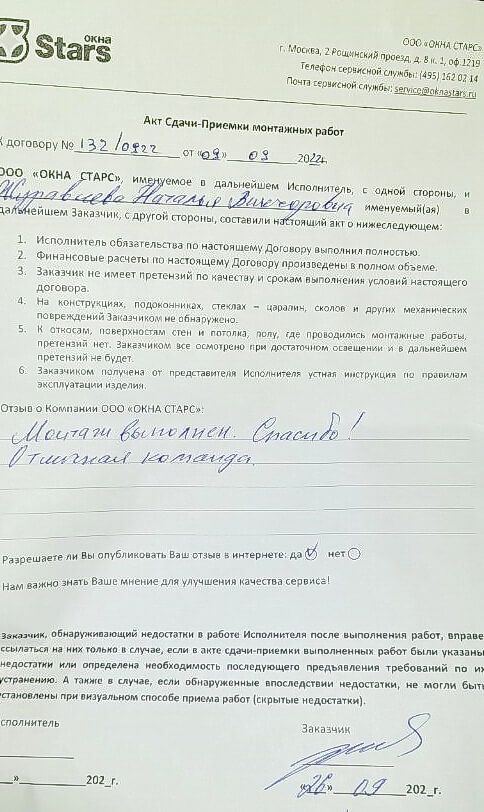 окна
Stars
ООО «ОКНА СТАРС»
г. Москва, 2 Рощинский проезд, д. 8 к. 1, оф.1219
Телефон сервисной службы: (495) 162 02 14
Почта сервисной службы: service@oknastars.ru
Акт Сдачи-Приемки монтажных работ
К договору № 132/0922 от «09» 09 2022г.
ООО «ОКНА СТАРС», именуемое в дальнейшем Исполнитель, с одной стороны, и
Журавлева Наталья Викторовна именуемый(ая) в
дальнейшем Заказчик, с другой стороны, составили настоящий акт о нижеследующем:
1. Исполнитель обязательства по настоящему Договору выполнил полностью.
2. Финансовые расчеты по настоящему Договору произведены в полном объеме.
3. Заказчик не имеет претензий по качеству и срокам выполнения условий настоящего
договора.
4. На конструкциях, подоконниках, стеклах – царапин, сколов и других механических
повреждений Заказчиком не обнаружено.
5. К откосам, поверхностям стен и потолка, полу, где проводились монтажные работы,
претензий нет. Заказчиком все осмотрено при достаточном освещении и в дальнейшем
претензий не будет.
6. Заказчиком получена от представителя Исполнителя устная инструкция по правилам
эксплуатации изделия.
Отзыв о Компании ООО «ОКНА СТАРС»:
Монтаж выполнен. Спасибо!
Отличная команда.
Разрешаете ли Вы опубликовать Ваш отзыв в интернете: да нет
Нам важно знать Ваше мнение для улучшения качества сервиса!
Заказчик, обнаруживающий недостатки в работе Исполнителя после выполнения работ, вправе
ссылаться на них только в случае, если в акте сдачи-приемки выполненных работ были указаны
недостатки или определена необходимость последующего предъявления требований по их
устранению. А также в случае, если обнаруженные впоследствии недостатки, не могли быть
установлены при визуальном способе приема работ (скрытые недостатки).
Исполнитель Заказчик
» 202_г. «26» 09 202_г.